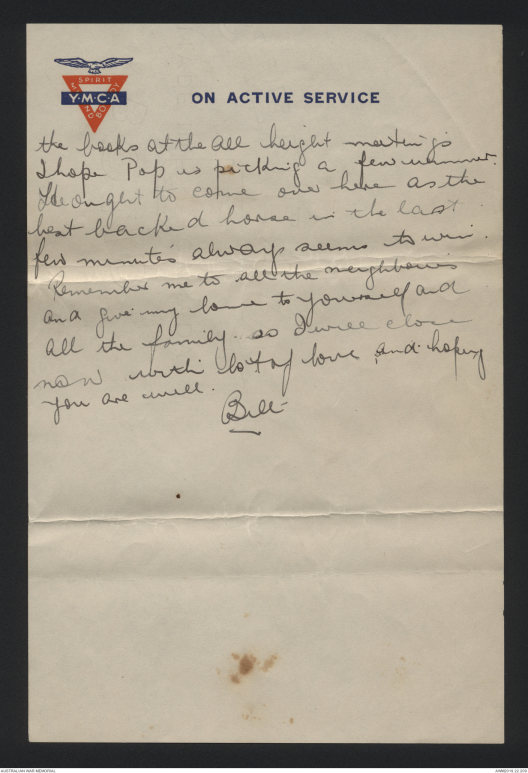 SPIRIT
MIND
BODY
Y·M·C·A
ON ACTIVE SERVICE
the books at the all height meetings
I hope Pop is picking a few winners.
He ought to come over here as the
best backed horse in the last
few minutes always seems to win.
Remember me to all the neighbours
and give my love to yourself and
all the family so I will close
now with lot of love and hoping
you are well.
Bill
AUSTRALIAN WAR MEMORIAL